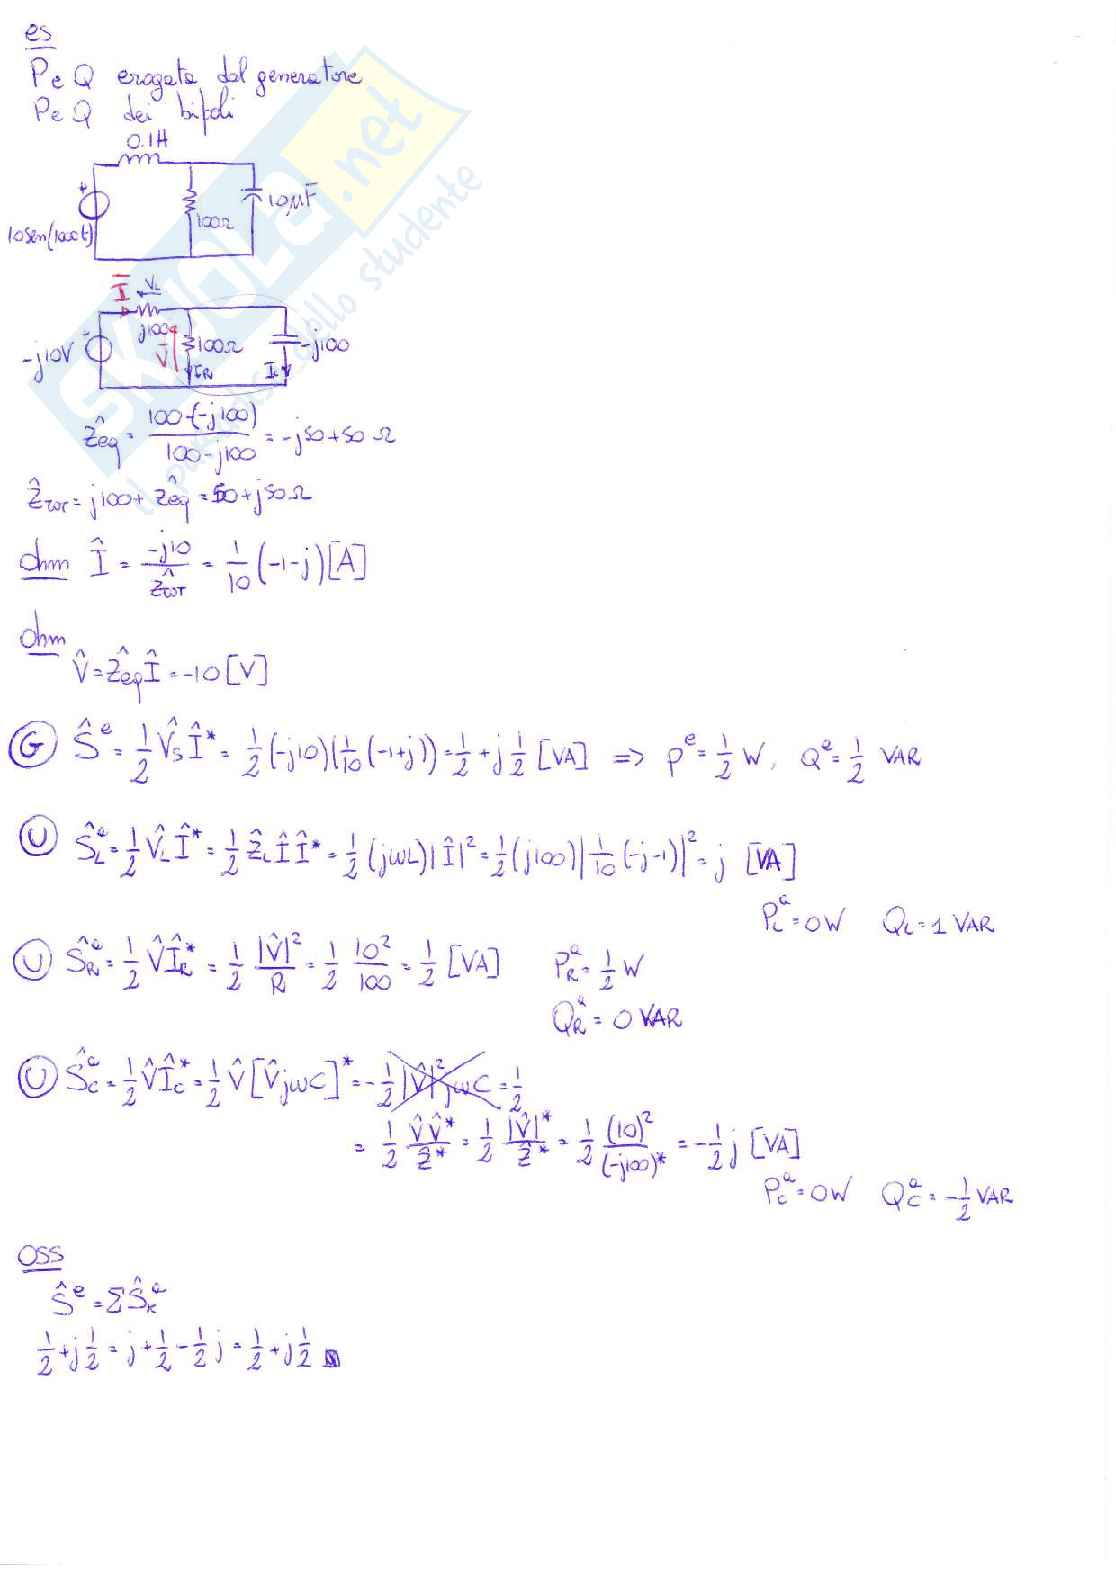 es
P e Q erogata dal generatore
P e Q dei bipoli
0.1H
10µF
100Ω
10sen(1000t)
Ī V_L
j100
-j10V
V̄
100Ω
-j100
I_R
I_c
Ẑeq = 100·(-j100) / 100-j100 = -j50+50 Ω
Ẑ_TOT = j100+ Ẑeq = 50+j50Ω
Ohm Î = -j10 / Ẑ_TOT = 1/10 (-1-j) [A]
Ohm
V̂ = Ẑeq Î = -10 [V]
G Ŝ^e = 1/2 V̂s Î* = 1/2 (-j10)(1/10 (-1+j)) = 1/2 + j 1/2 [VA] => P^e = 1/2 W, Q^e = 1/2 VAR
U Ŝ_L^a = 1/2 V̂_L Î* = 1/2 Ẑ_L Î Î* = 1/2 (jωL)|Î|² = 1/2 (j100)|1/10 (-j-1)|² = j [VA]
P_L^a = 0W Q_L = 1 VAR
U Ŝ_R^a = 1/2 V̂ Î_R* = 1/2 |V̂|²/R = 1/2 10²/100 = 1/2 [VA] P_R^a = 1/2 W
Q_R^a = 0 VAR
U Ŝ_C^a = 1/2 V̂ Î_C* = 1/2 V̂ [V̂jωC]* = - 1/2 |V̂|² jωC = 1/2
= 1/2 V̂V̂*/Ẑ* = 1/2 |V̂|*/Ẑ* = 1/2 (10)²/(-j100)* = - 1/2 j [VA]
P_C^a = 0W Q_C^a = - 1/2 VAR
OSS
Ŝ^e = ΣŜ_K^a
1/2 + j 1/2 = j + 1/2 - 1/2 j = 1/2 + j 1/2
SKUOLA.net
il paradiso dello studente